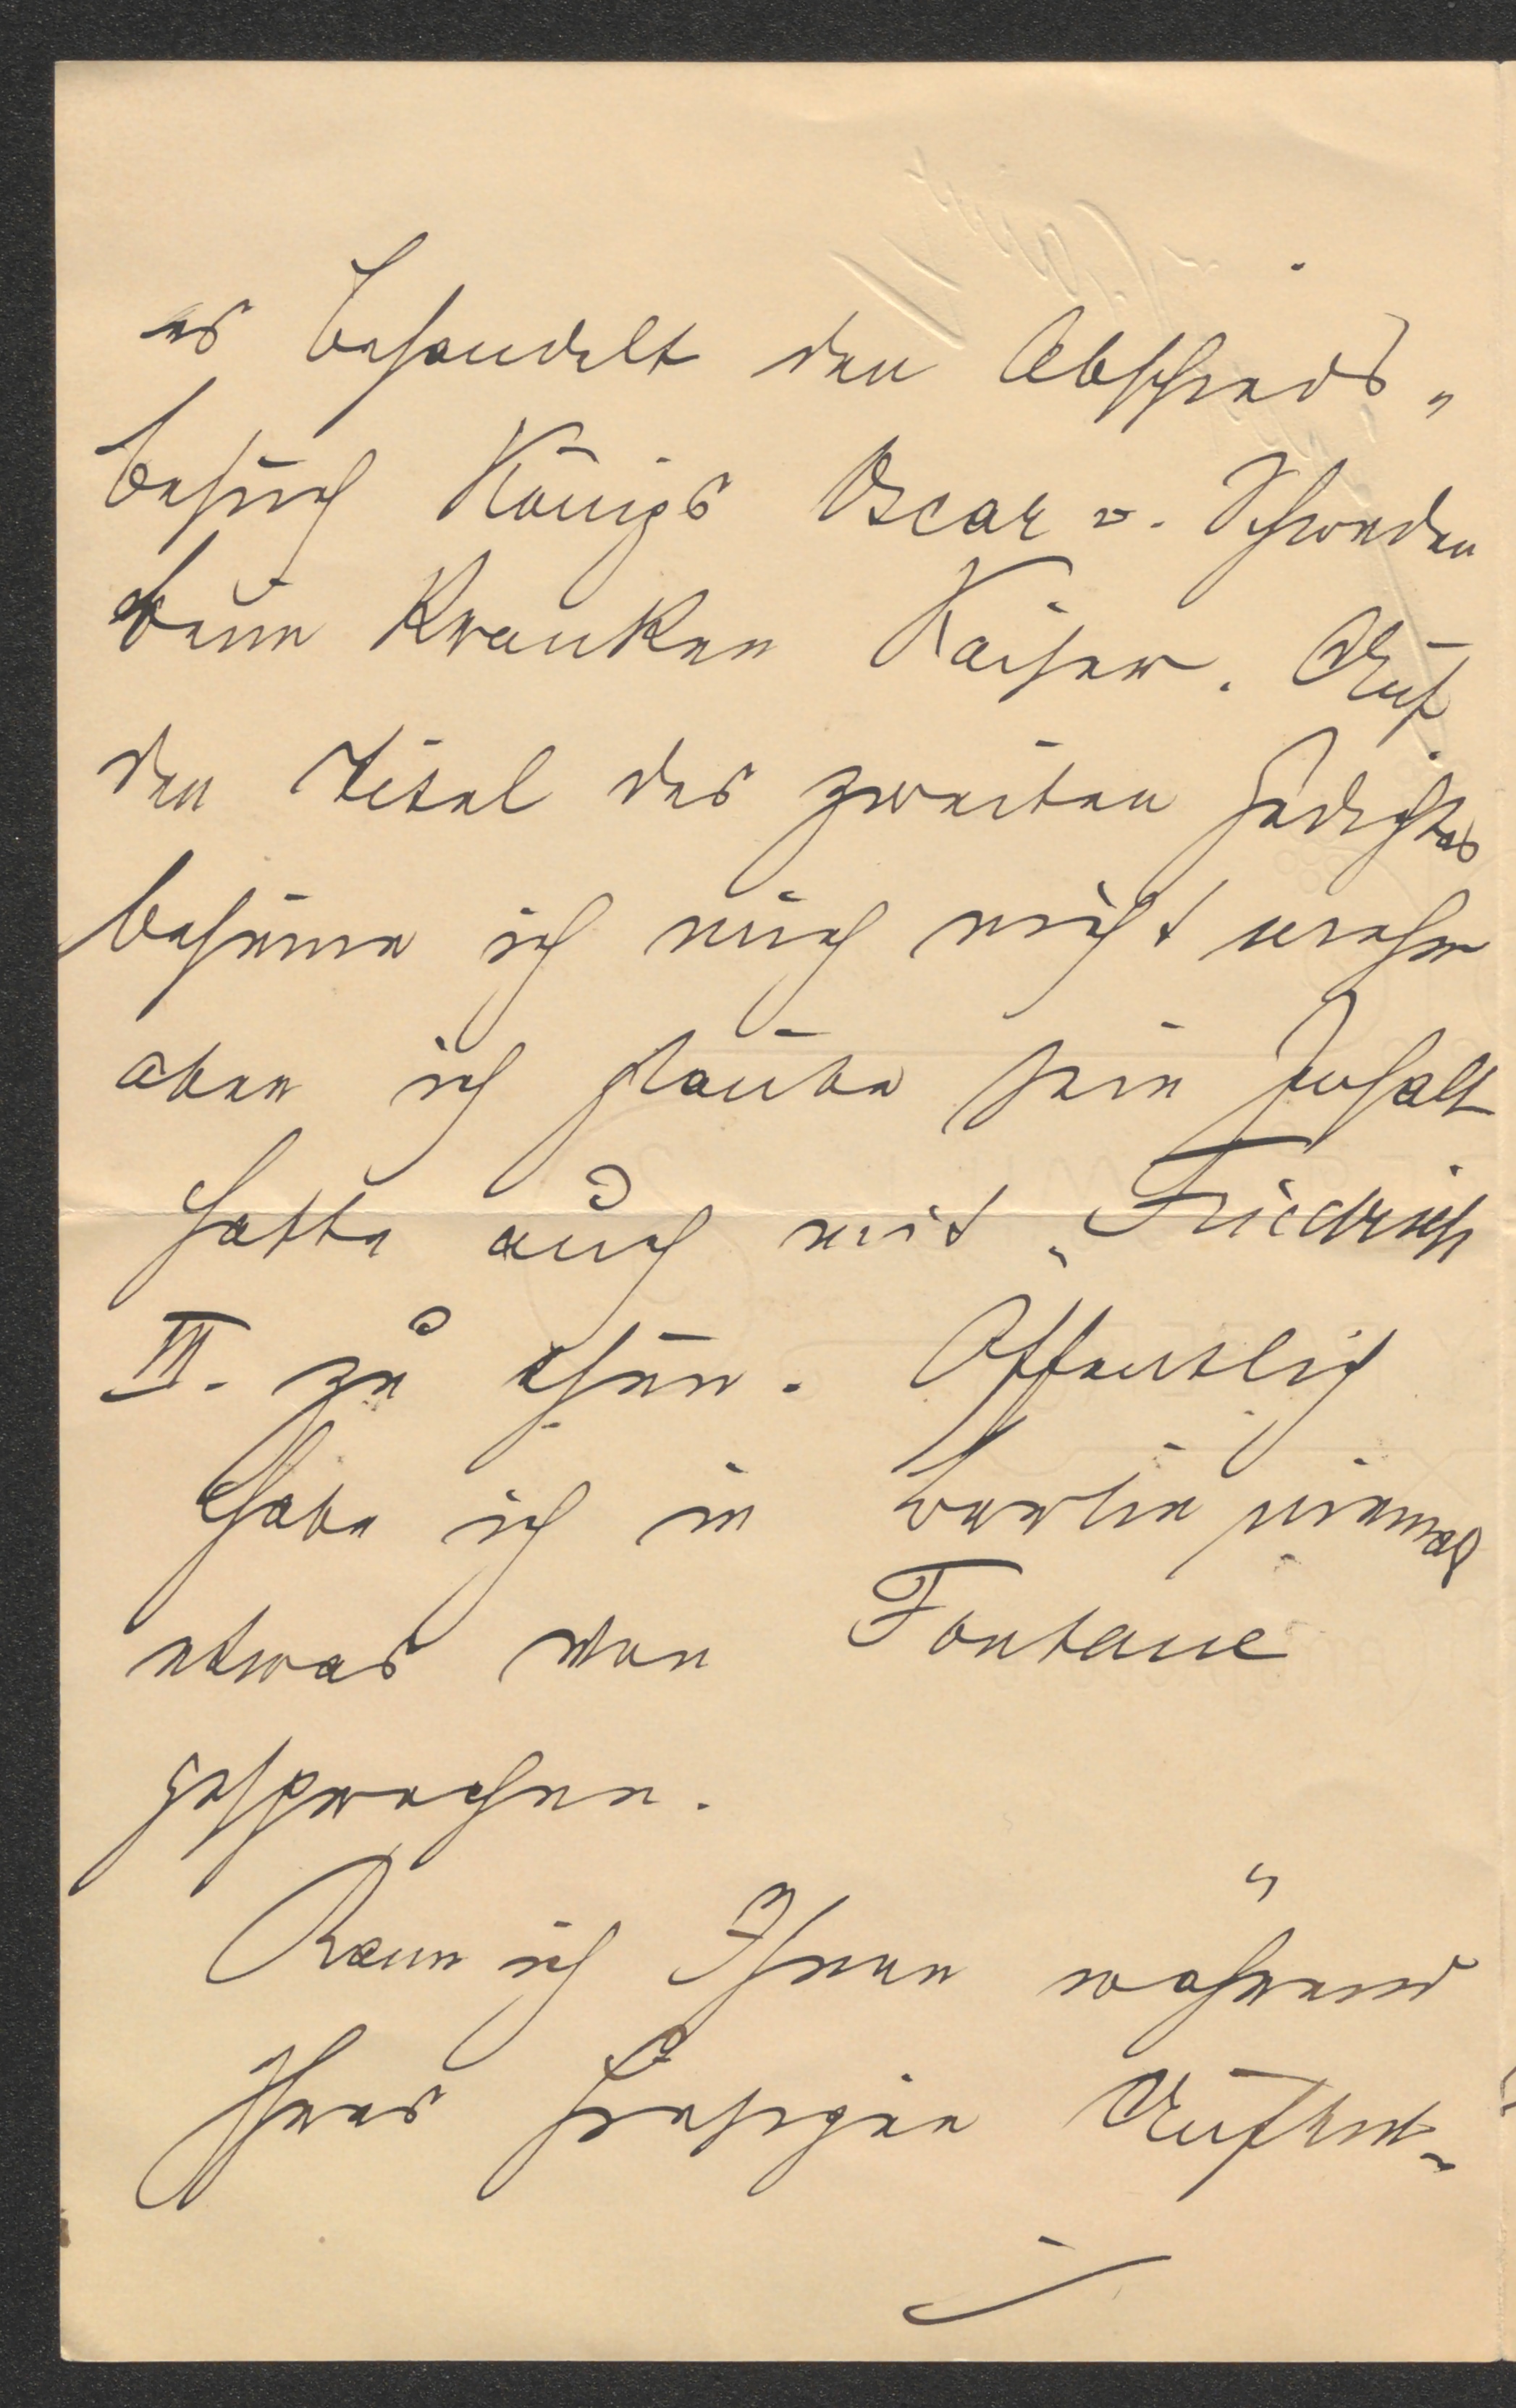 es behandelt den Abschieds„
besuch Königs Oscar v. Schweden
beim Kranken Kaiser. Auf
den Titel des zweiten Gedichtes
besinne ich mich nicht mehr
aber ich glaube sein Inhalt
hatte auch mit „Friedrich
III. zu thun. Öffentlich
habe ich in Berlin niemals
etwas von Fontane
gesprochen.
Kann ich Ihnen während
Ihres hiesigen Aufent-